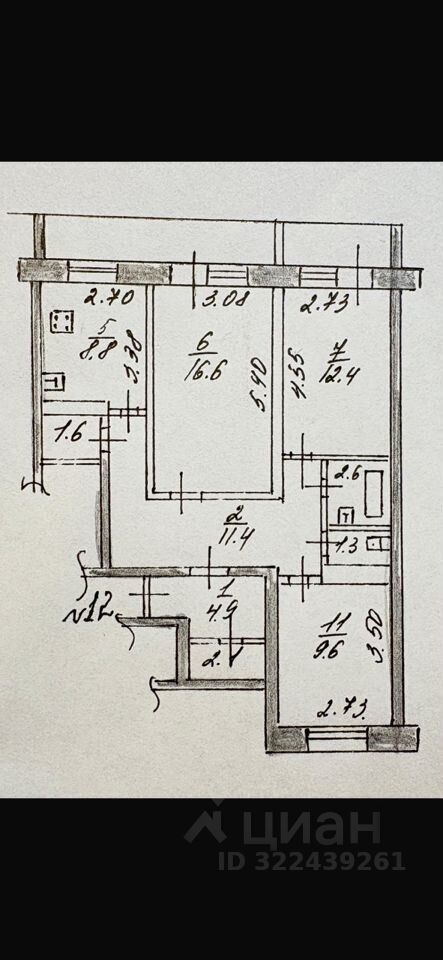 2.70
3.08
2.73
5
8.8
3.38
6
16.6
5.40
4.55
7
12.4
1.6
2.6
2
11.4
1.3
1
4.9
N12
11
9.6
3.50
2.73
циан
ID 322439261